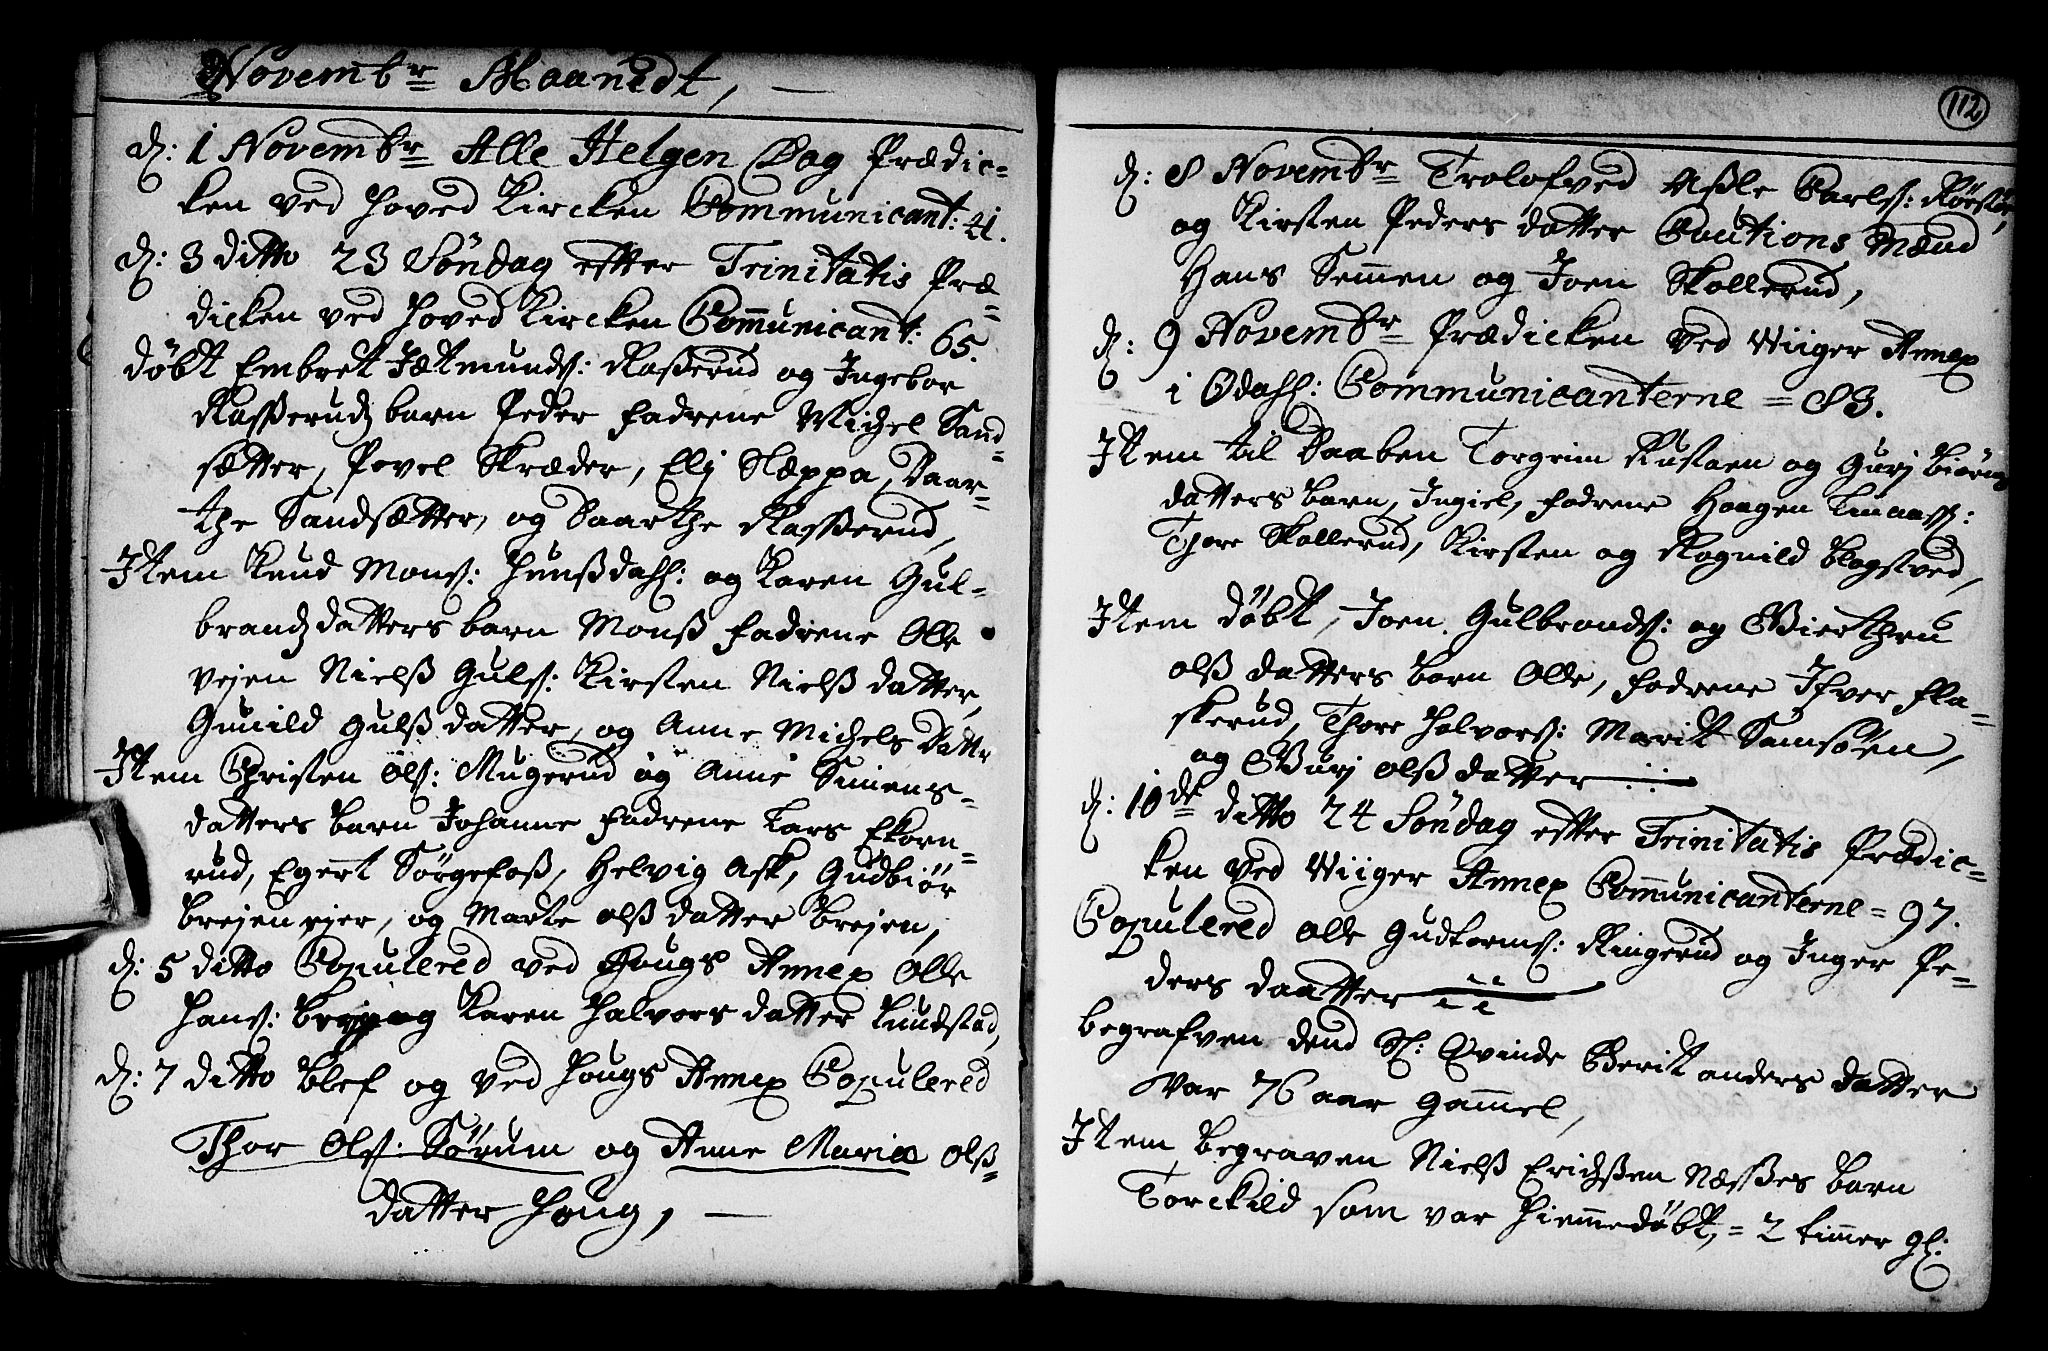 Novembr Maanedt,
d: 1 Novembr Alle Helgen Dag Prædic=
ken ved Hoved Kircken Communicant: 41.
d: 3 ditto 23 Søndag efter Trinitatis Præ=
dicken ved Hoved Kircken Communicant: 65.
Døbt Embret Jætmunds: Rasserud og Ingebor
Rasserudz barn Peder Fadrene Michel Sand=
sætter, Povel Skræder, Elj Slæppa, Daar=
the Sandsætter, og Daarthe Rasserud,
Item Knud Mons: Hunssdahl: og Karen Gul=
brandz datters barn Monss Fadrene Olle
Vejen Nielss Guls: Kirsten Nielss datter,
Gunild Gulss datter, og Anne Michels Dattr
Item Christen Ols: Mugerud og Anne Simens=
datters barn Johanne Fadrene Lars Ekorn=
rud, Egert Sørgefoss, Helvig Ask, Gudbiør
Brejen ejer, og Marte Olss datter Brejen,
d: 5 ditto Copulered ved Hougs Annex Olle
Hans: og Karen Halvors datter Lundstad,
d: 7 ditto blef og ved Hougs Annex Copulered
Thor Ols: Sørum og Anne Maria Olss=
datter Houg,
112
d: 8 Novembr Trolofved Assle Carls: Rørstør,
og Kirsten Peders datter Cautions Mænd
Hans Semen og Joen Skollerud,
d: 9 Novembr Prædicken ved Wiiger Annex
i Odahl: Communicanterne = 83.
Item til Daaben Torgrim Rustaen og Gurj Biørns
datters barn, Ingiel, Fadrene Haagen
Thore Skollerud, Kirsten og Rognild Blogstved,
Item Døbt, Joen Gulbrands: og Gierthru
Olss datters barn Olle, Fadrene Ifver Fla=
skerud, Thore Halvors: Marit Samsøen,
og Gurj Olss datter
d: 10de ditto 24 Søndag efter Trinitatis Prædic=
ken ved Wiiger Annex Communicanterne = 97.
Copulered Olle Gudtorms: Ringerud og Inger Pe=
ders daatter
Begrafven dend Sl: Qvinde Berit Anders datter
Var 76 aar Gammel,
Item begraven Nielss Erichssen Næsses barn
Torckild som var Hiemmedøbt, = 2 timer gl: